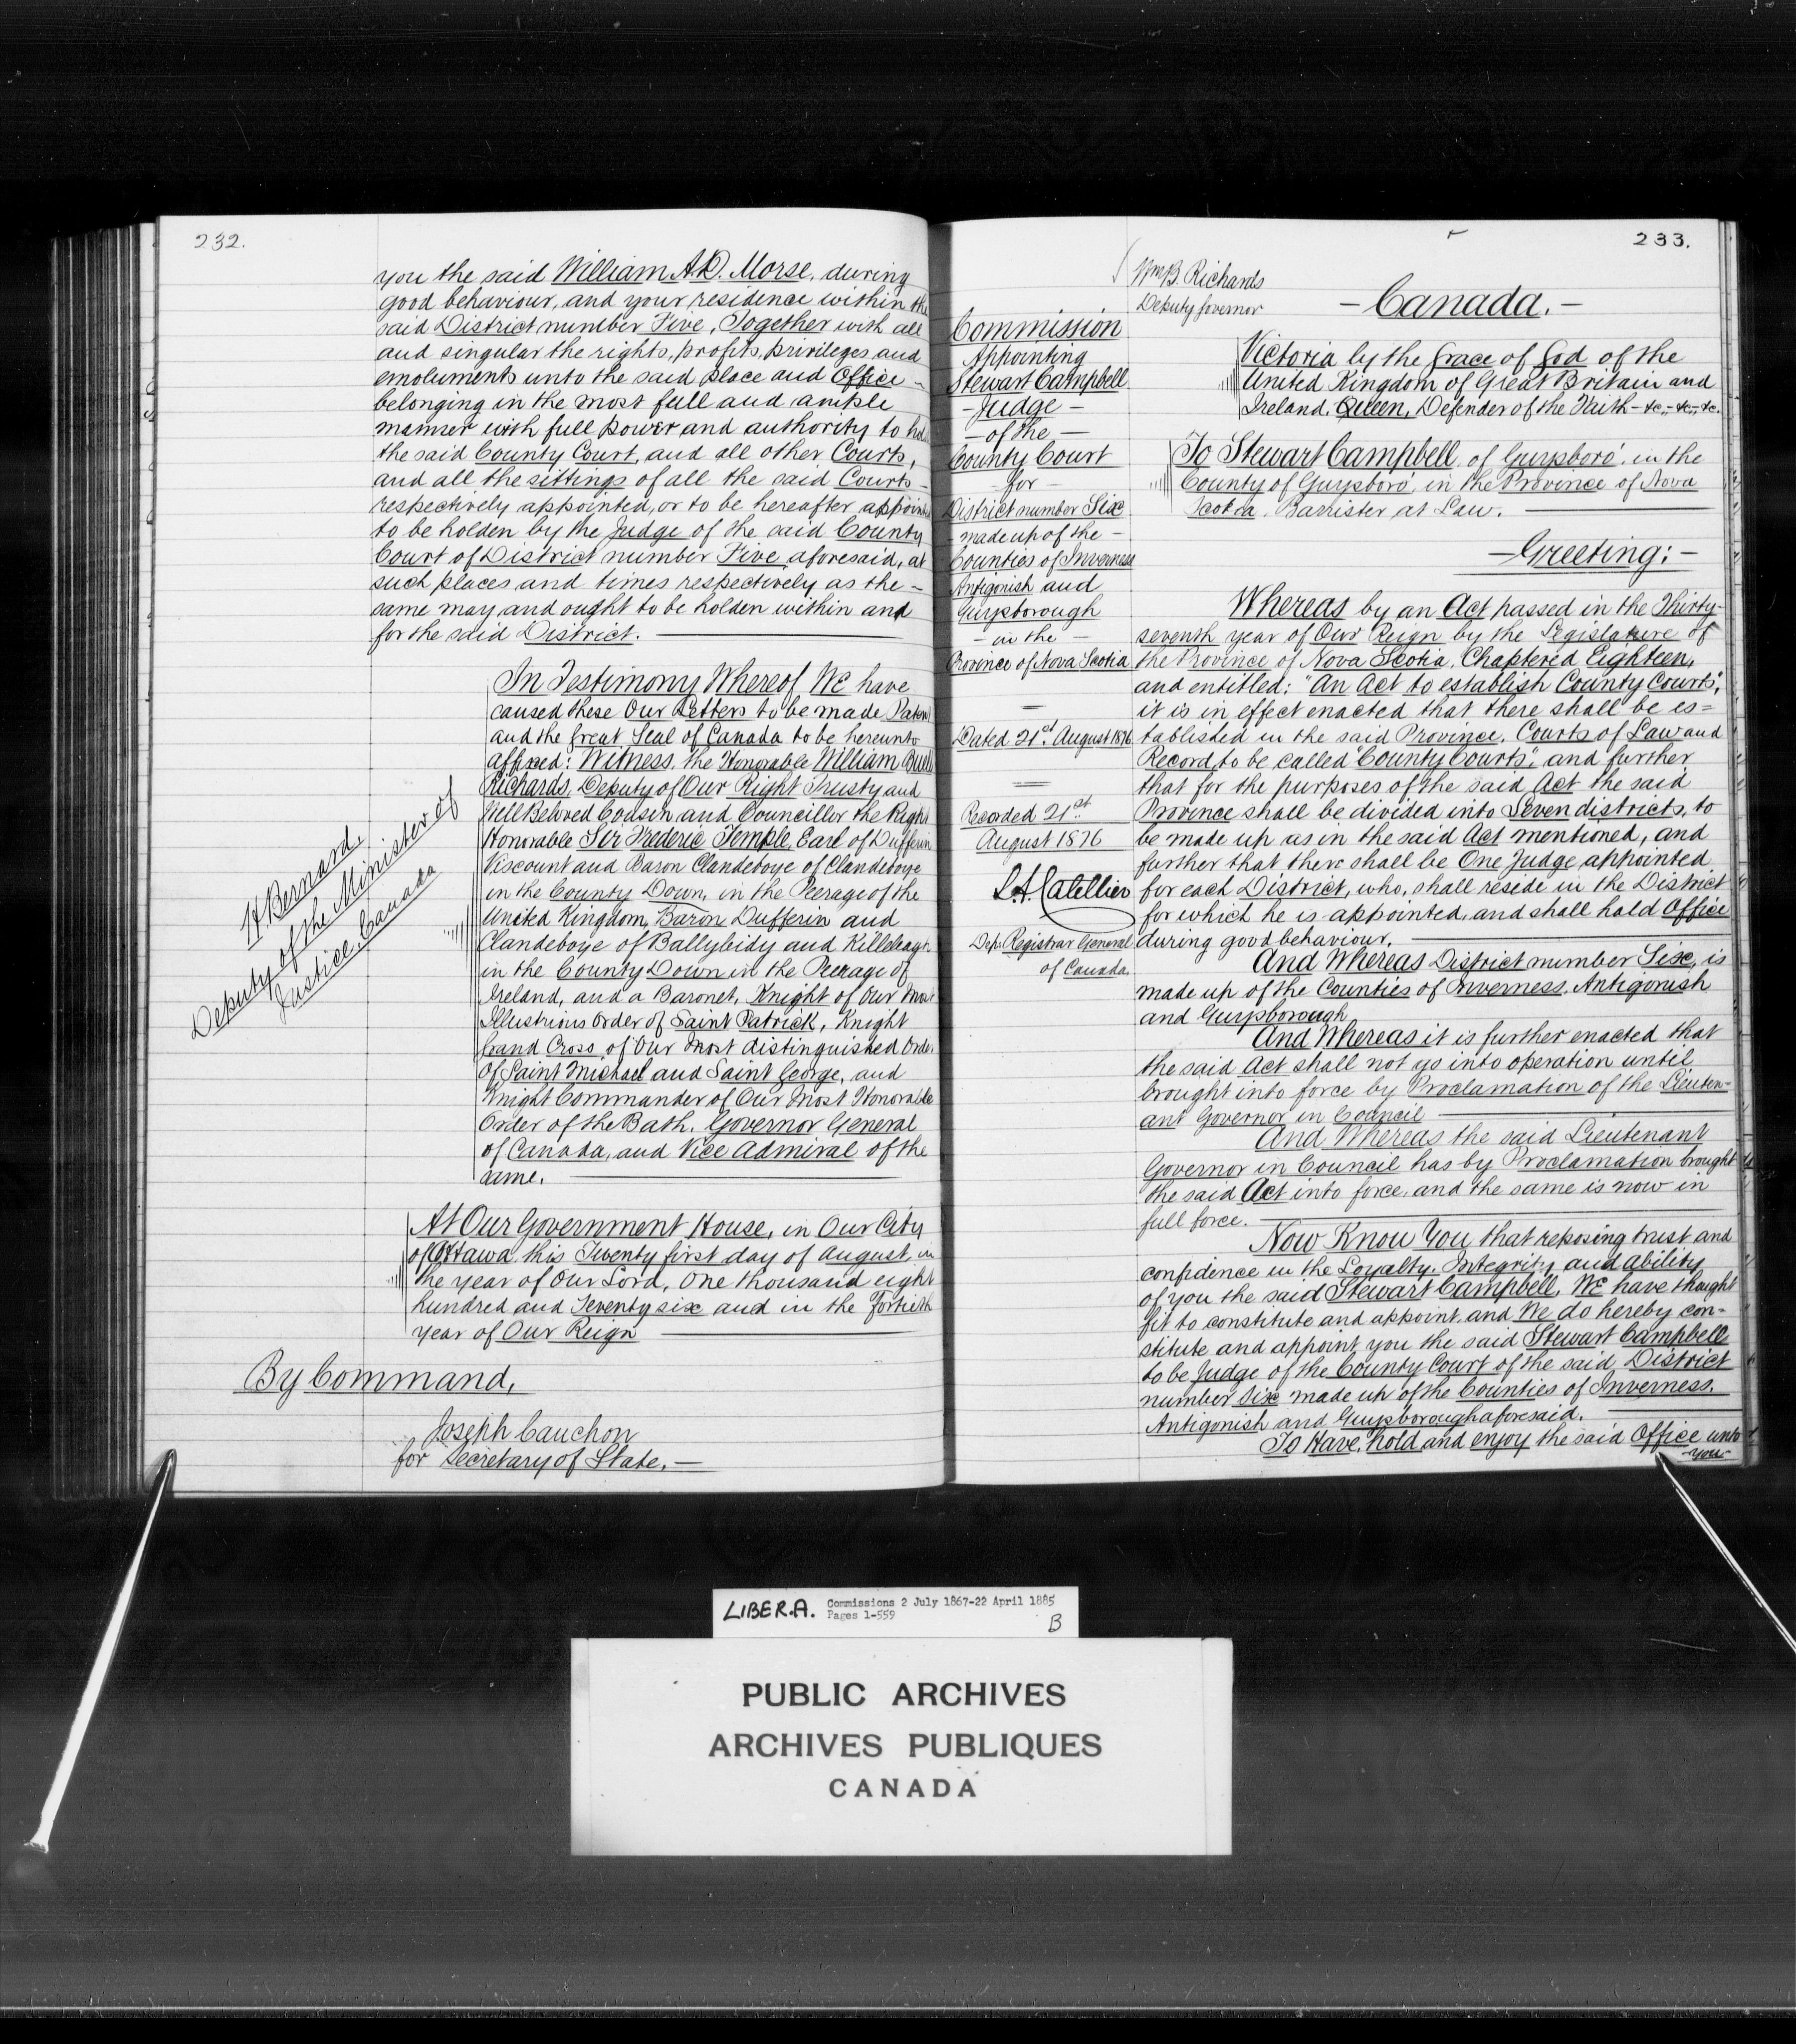 232.
you the said William A.D. Morse, during
good behaviour, and your residence within the
said District number Five, Together with all
and singular the rights, profits, privileges and
emoluments unto the said place and Office -
belonging in the most full and ample
manner with full power and authority to hold
the said County Court, and all other Courts,
and all the sittings of all the said Courts -
respectively appointed, or to be hereafter appointed
to be holden by the Judge of the said County
Court of District number Five aforesaid, at
such places and times respectively as the -
same may and ought to be holden within and
for the said District.
In Testimony Whereof We have
caused these Our Letters to be made Patent
and the Great Seal of Canada to be hereunto
affixed: Witness, the Honorable William Buell
Richards, Deputy of Our Right Trusty and
Well Beloved Cousin and Councillor the Right
Honorable Sir Frederic Temple, Earl of Dufferin
Viscount and Baron Clandeboye of Clandeboye
in the County Down, in the Peerage of the
United Kingdom, Baron Dufferin and
Clandeboye of Ballyleidy and Killeleagh
in the County Down in the Peerage of
Ireland, and a Baronet, Knight of Our Most
Illustrious Order of Saint Patrick, Knight
Grand Cross of Our Most distinguished Order
of Saint Michael and Saint George, and
Knight Commander of Our Most Honorable
Order of the Bath, Governor General
of Canada, and Vice Admiral of the
same.
H. Bernard,
Deputy of the Minister of
Justice, Canada
At Our Government House, in Our City
of Ottawa this Twenty first day of August, in
the year of Our Lord, One thousand eight
hundred and Seventy six and in the Fortieth
year of Our Reign
By Command,
Joseph Cauchon
for Secretary of State. -
233.
Wm B. Richards
Deputy Governor
- Canada. -
Commission
Appointing
Stewart Campbell
- Judge -
- of the -
County Court
- for -
District number Six
- made up of the -
Counties of Inverness
Antigonish and
Guysborough
- in the -
Province of Nova Scotia
Dated 21st August 1876
Recorded 21st
August 1876
L.A. Catellier
Dep. Registrar General
of Canada.
Victoria by the Grace of God of the
United Kingdom of Great Britain and
Ireland, Queen, Defender of the Faith - &c., - &c., &c.
To Stewart Campbell, of Guysboro', in the
County of Guysboro', in the Province of Nova
Scotia, Barrister at Law.
- Greeting: -
Whereas by an Act passed in the Thirty-
seventh year of Our Reign by the Legislature of
the Province of Nova Scotia, Chaptered Eighteen,
and entitled: "An Act to establish County Courts",
it is in effect enacted that there shall be es=
tablished in the said Province, Courts of Law and
Record to be called "County Courts", and further
that for the purposes of the said Act the said
Province shall be divided into Seven districts, to
be made up as in the said Act mentioned, and
further that there shall be One Judge appointed
for each District, who, shall reside in the District
for which he is appointed, and shall hold Office
during good behaviour.
And Whereas District number Six, is
made up of the Counties of Inverness, Antigonish
and Guysborough
And Whereas it is further enacted that
the said Act shall not go into operation until
brought into force by Proclamation of the Lieuten-
ant Governor in Council
And Whereas the said Lieutenant
Governor in Council has by Proclamation brought
the said Act into force, and the same is now in
full force.
Now Know You that reposing trust and
confidence in the Loyalty, Integrity and ability
of you the said Stewart Campbell, We have thought
fit to constitute and appoint, and We do hereby con-
stitute and appoint you the said Stewart Campbell
to be Judge of the County Court of the said District
number Six made up of the Counties of Inverness,
Antigonish and Guysborough aforesaid.
To Have, hold and enjoy the said Office unto
- you
LIBER.A. Commissions 2 July 1867-22 April 1885
Pages 1-559
B
PUBLIC ARCHIVES
ARCHIVES PUBLIQUES
CANADA